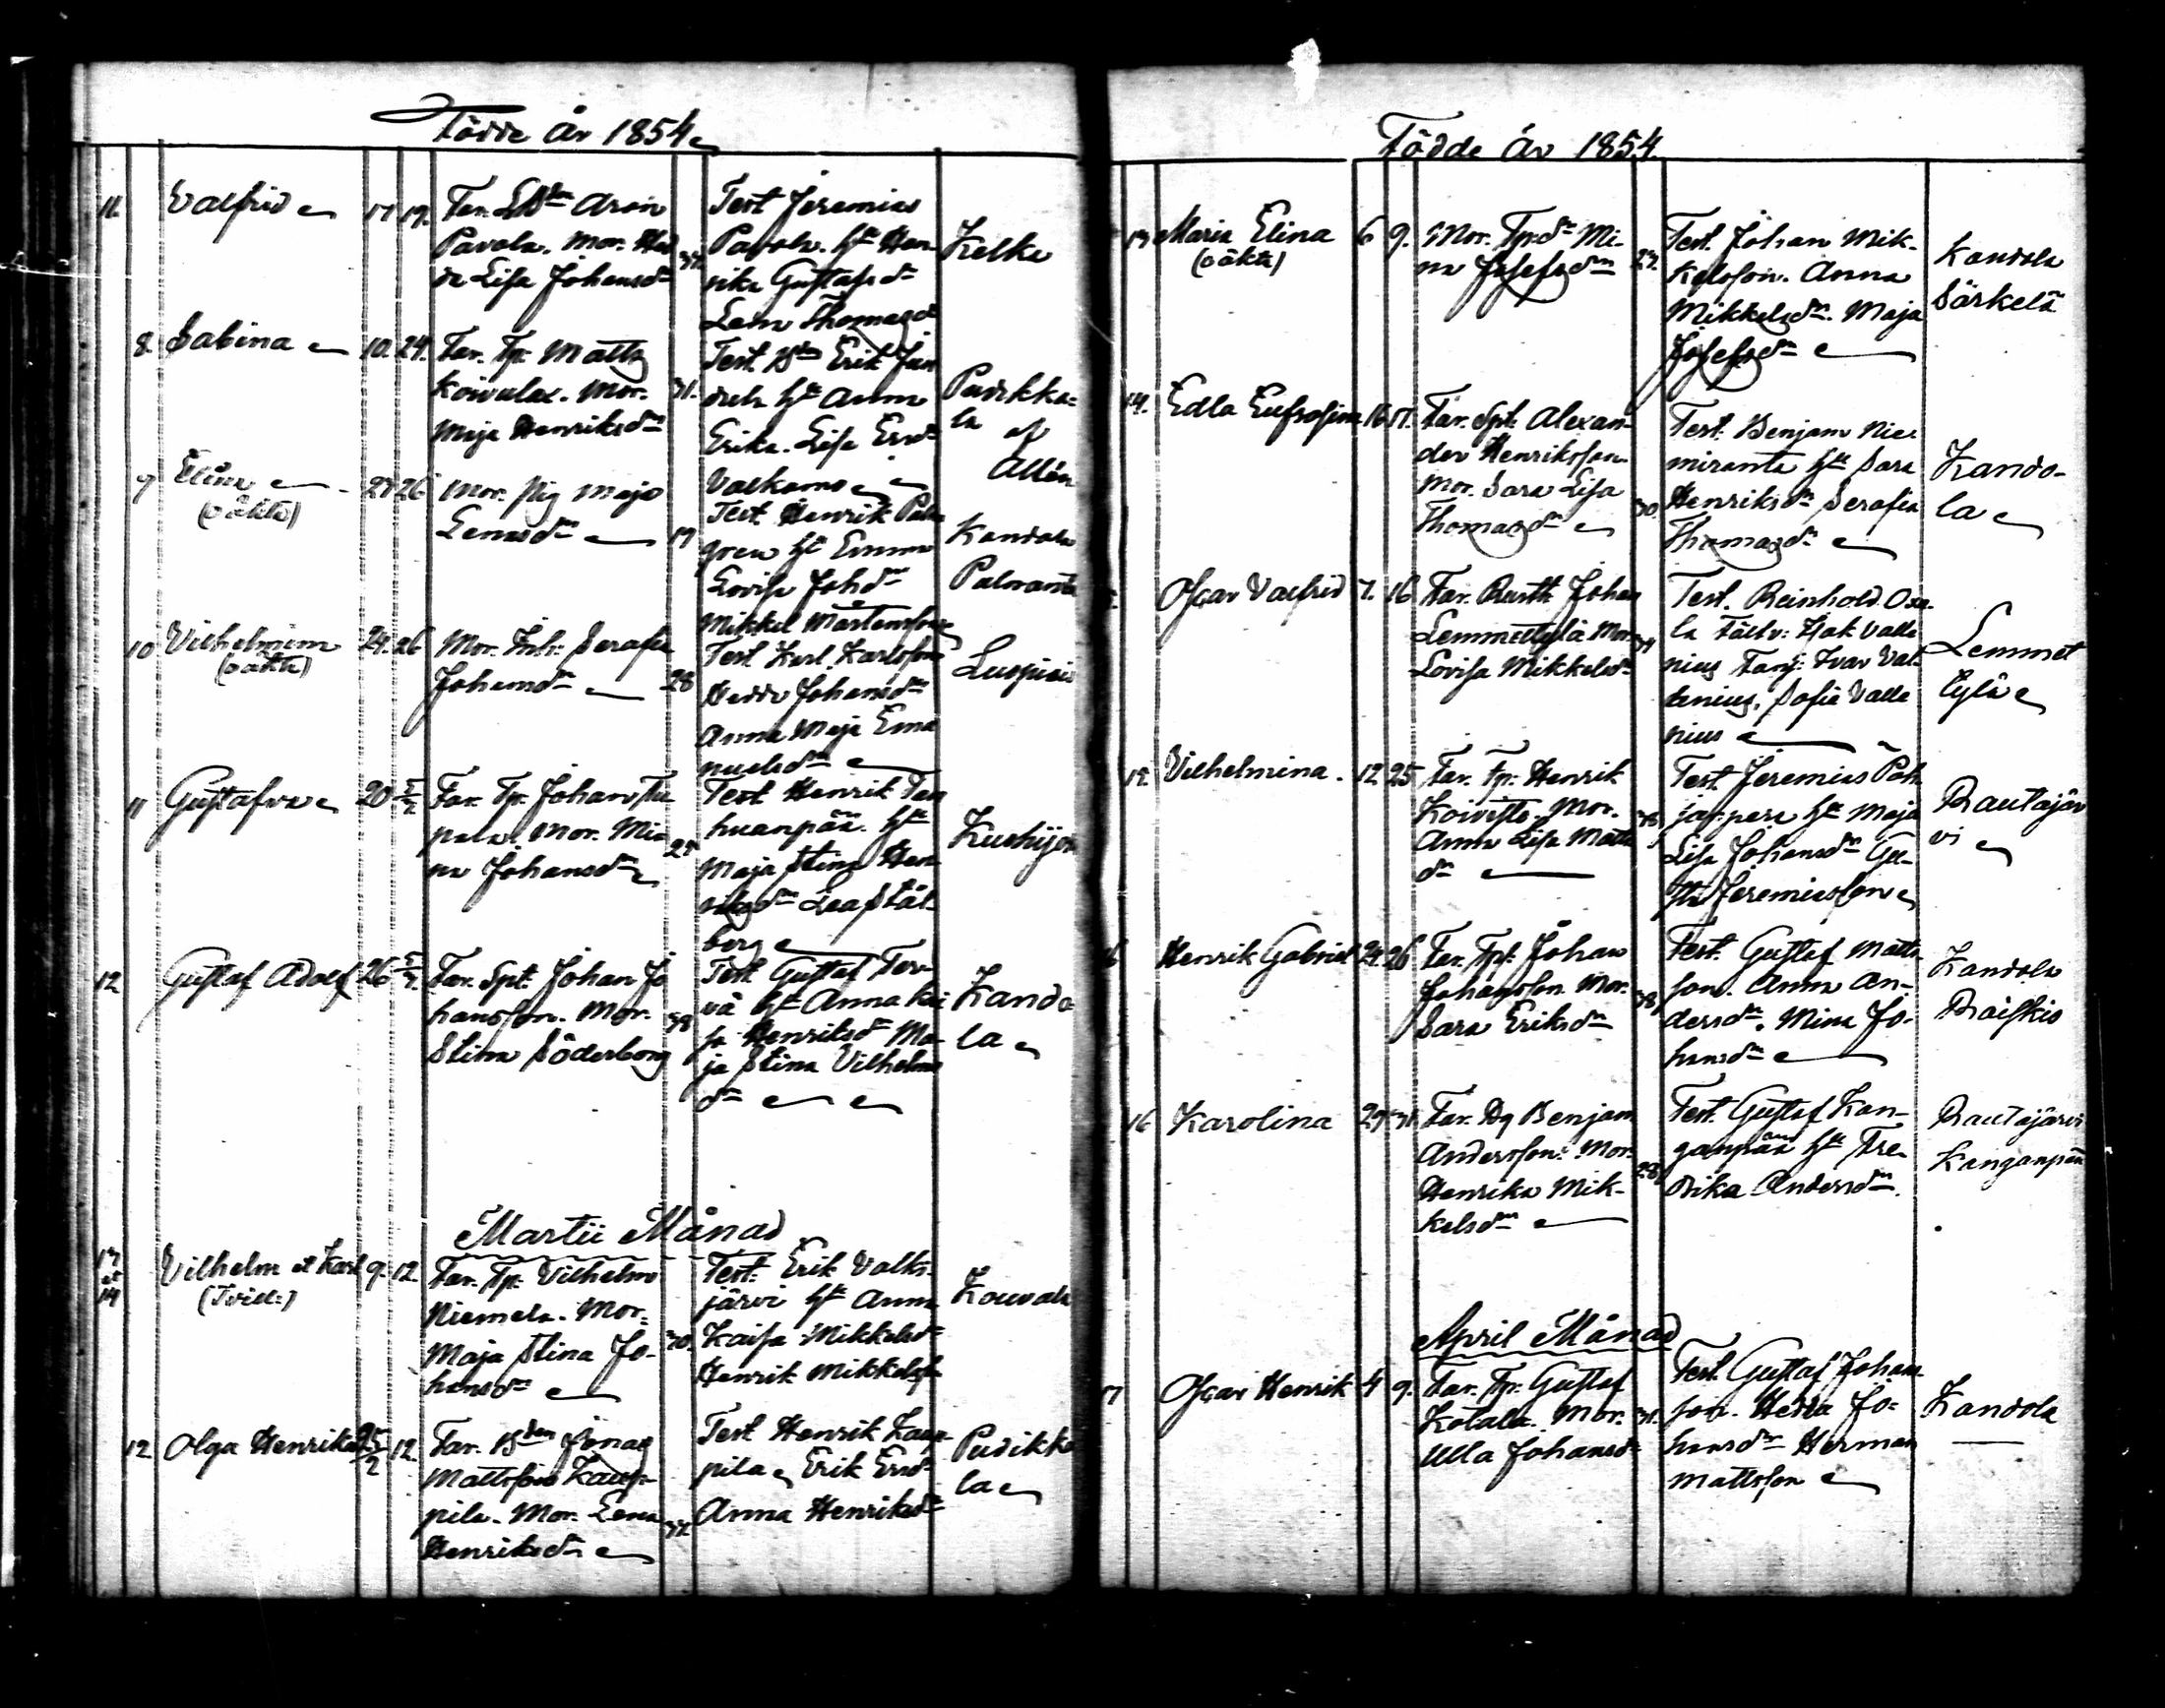 Födde år 1854
11. Valfrid 17 19. Far. LBdn Aron
Pavola. Mor. Hed
da Lisa Johansdr 37.
Test Jeremias
Pavola. hu Hen
rika Gustafsdr
Lena Thomasdr
Kelka
8. Sabina 10. 24. Far. Tp. Matts
Koivula. Mor.
Maja Henriksdr
31.
Test Bdn Erik Jun
hu Anna
Erika. Lisa Ersdr
Valkama
Pudikka=
la af
9 Elina 24 26 Mor. Pig Maja
(oäkta)
Lenasdr 19
Test Henrik Palm
gren hu Emma
Lovisa Johdr
Mikkel Mårtensson
Kandola
Paloranta
10 Vilhelmina 24. 26 Mor. Inh: Serafia
(oäkta)
Johansdr 28
Test Karl Karlsson
Hedda Johansdr
Anna Maja Ema
nuelsdr
11 Gustafva 20 5/3 Far. Tp. Johan
Mor. Mi
na Johansdr
Test Henrik Tan
huanpää. hu
Maja Stina Hen
riksdr Lea Stål-
berg
12. Gustaf Adolf 26 5/3 Far. Spt. Johan Jo
hansson. Mor. 39
Stina Söderborg
Test Gustaf Ter-
vä hu Anna Kai
sa Henriksdr Ma-
ja Stina Vilhelms
dr
Kando
la
Martii Månad
13
et
14 Vilhelm et Karl 9. 12. Far. Tp. Vilhelm
(Tvill:)
Niemelä. Mor.
Maja Stina Jo- 30.
hansdr
Test: Erik Valks-
järvi hu Anna
Kaisa Mikkelsdr
Henrik Mikkelss.
Kouvala
12. Olga Henrika 25/2 12. Far. Bden Jonas
Mattsson Kaup-
pila. Mor. Lena 37.
Henriksdr
Test Henrik Kaup-
pila Erik Ersdr
Anna Henriksdr
Pudikka
la
Födde år 1854.
13 Maria Elina 6 9. Mor. Tp.dr Mi-
(oäkta)
na Josefsdr 27.
Test. Johan Mik-
kelsson. Anna
Mikkelsdr. Maja
Josefsdr
Kandola
Särkelä
14. Edla Eufrosina 16 17. Far. Spt. Alexan-
der Henriksson
Mor. Sara Lisa
Thomasdr 30.
Test. Benjam Nie-
miranta hu Sara
Henriksdr Serafia
Thomasdr
Kando-
la
Oscar Valfrid 7. 16 Far. Rustth Johan
Lemmettylä Mor
Lovisa Mikkelsdr
Test. Reinhold
Valle
nius Fanj: Ivar Val-
lenius, Sofia Valle
nius
Lemmet
tylä
15. Vilhelmina. 12 25 Far. Tp. Henrik
Koivisto. Mor.
Anna Lisa Matts
dr
Test. Jeremias Poh
janperä hu Maja
Lisa Johansdr Gu-
sta Jeremiasson
Rautajär
vi
Henrik Gabriel 24. 26 Far. Tpt. Johan
Johansson Mor. 38
Sara Eriksdr
Test. Gustaf Matts
son. Anna An-
dersdr. Mina Jo-
hansdr
Kandola
Raiskio
16 Karolina 29 31. Far. Dg Benjam
Andersson: Mor.
Henrika Mik- 28
kelsdr
Test. Gustaf Kan-
ganpää hu Fre-
drika Andersdr.
Rautajärvi
Kanganpää
April Månad
17 Oscar Henrik 4 9. Far. Tp. Gustaf
Kotala. Mor. 31.
Ulla Johansdr
Test. Gustaf Johan
son. Hedda Jo=
hansdr Herman
Mattsson
Kandola